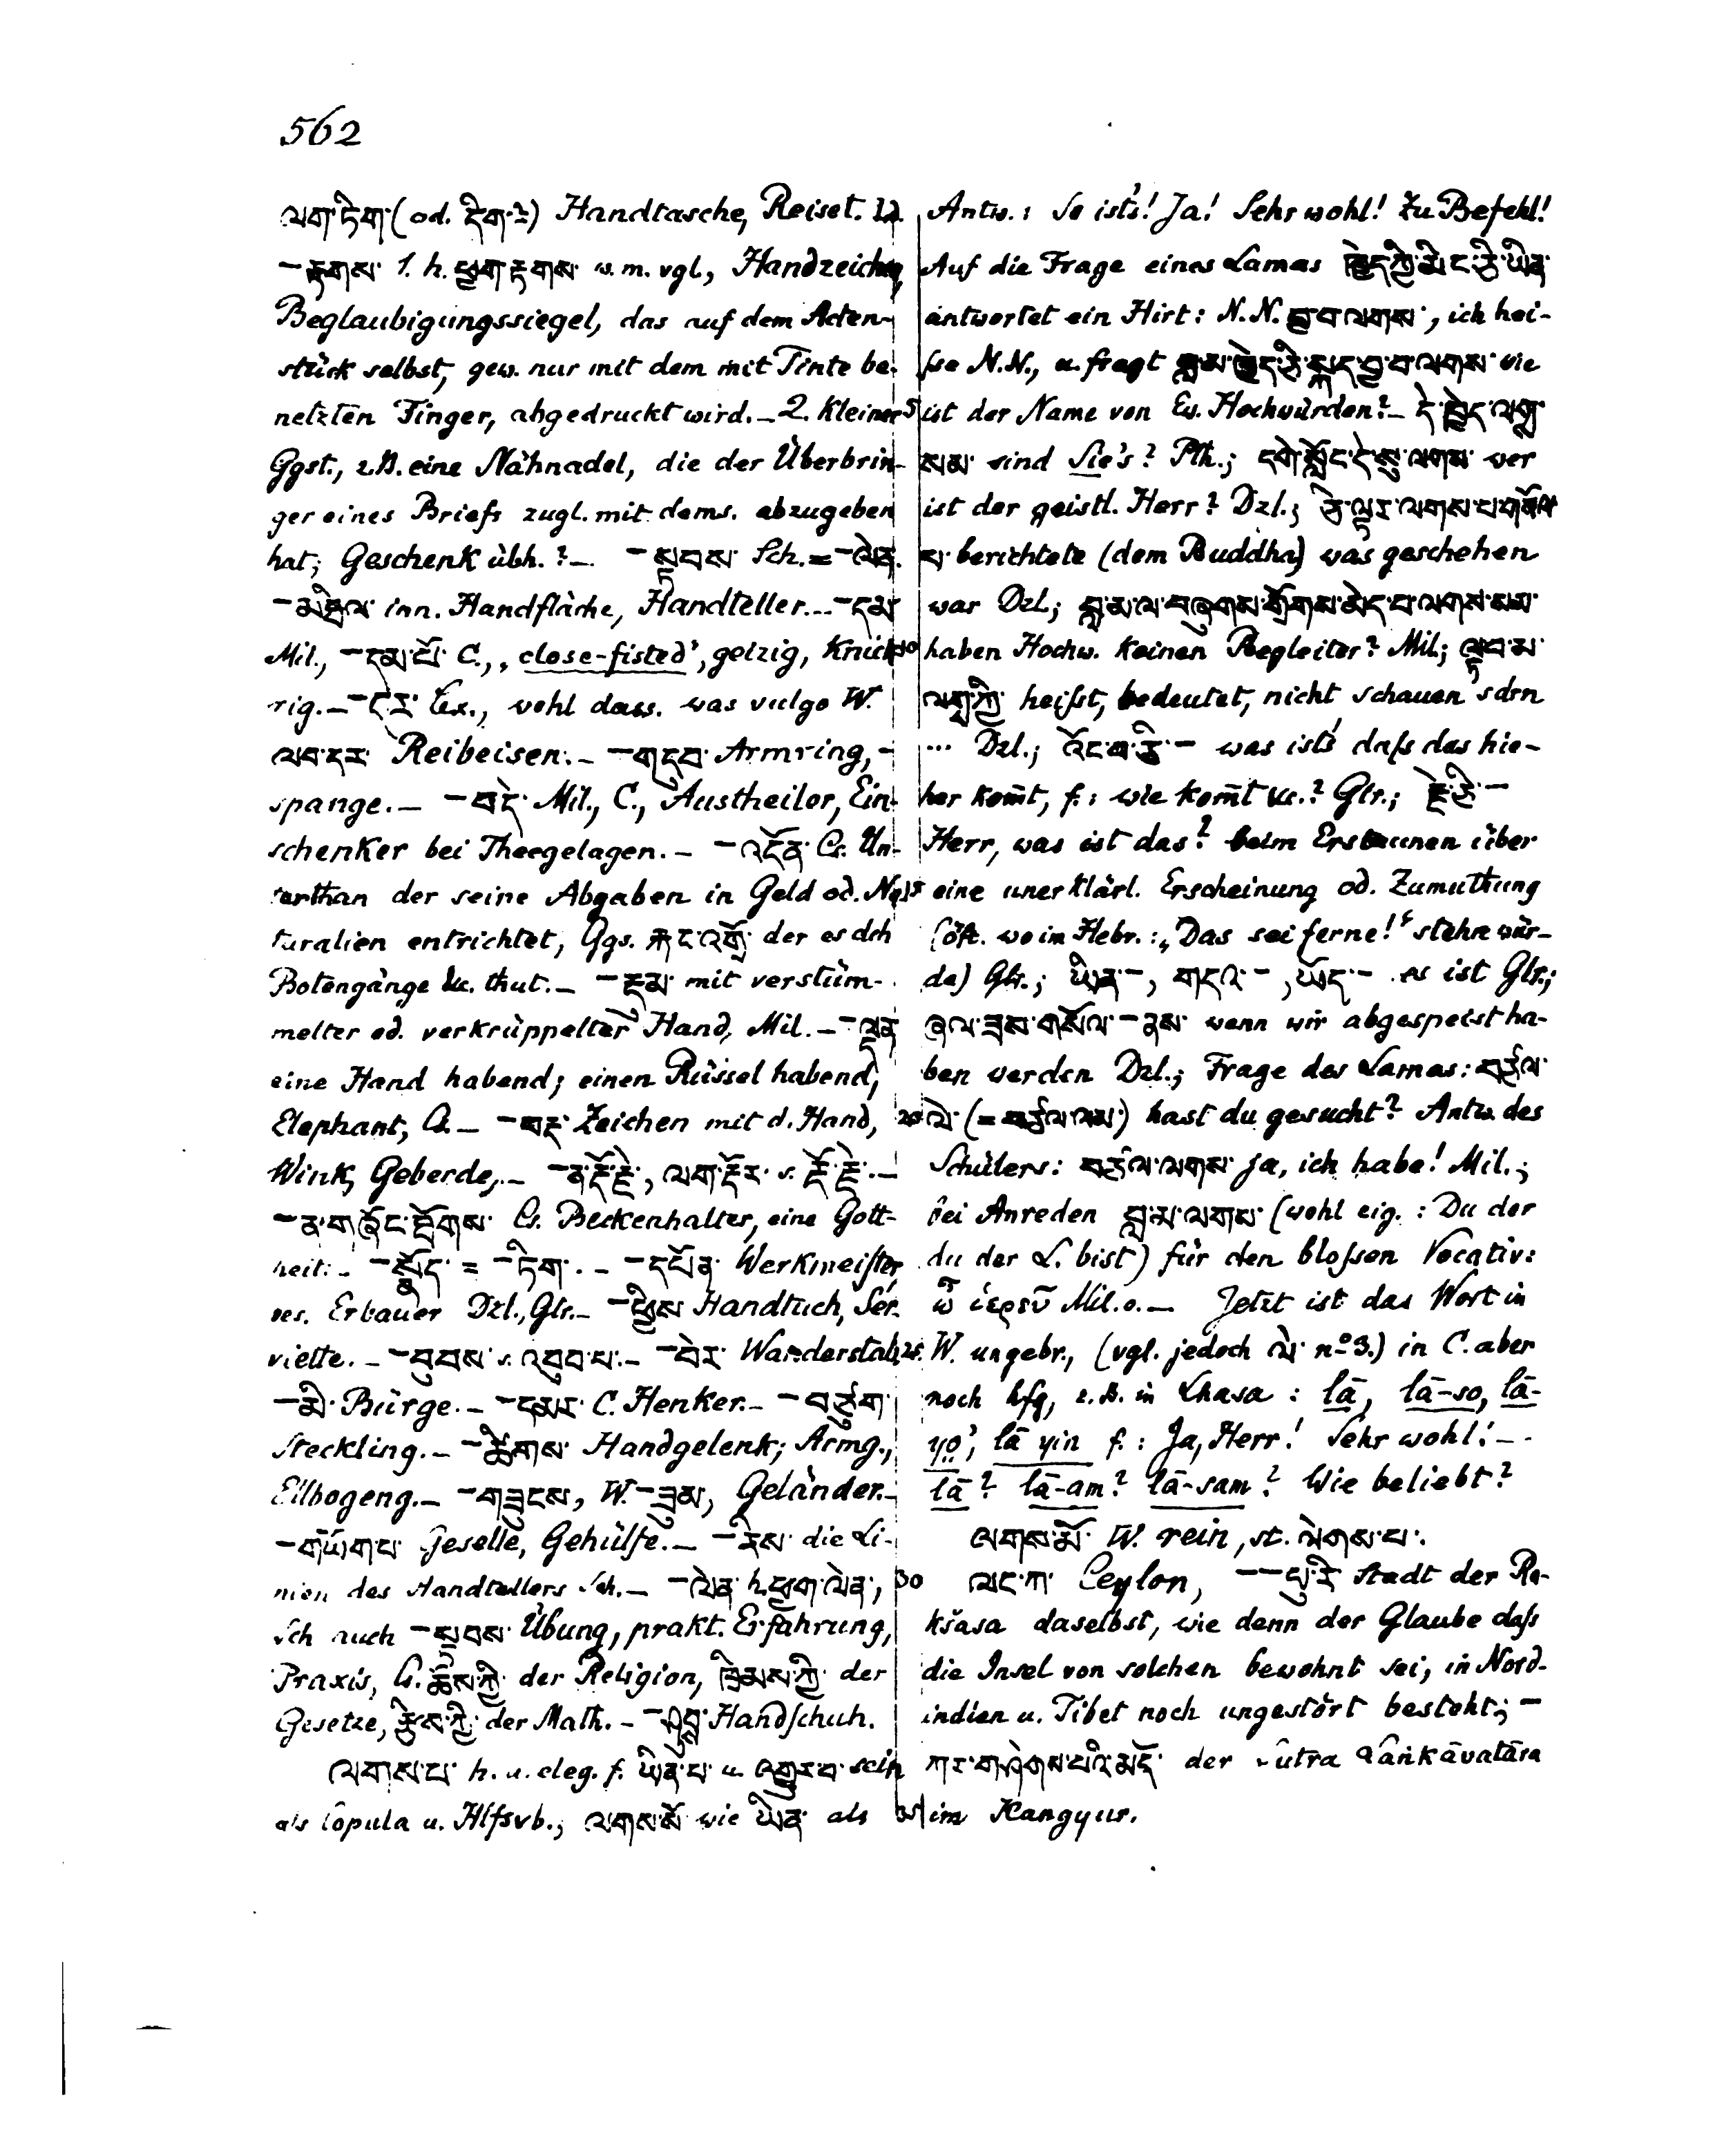 562
ལག་ཏིག་(od. དིག་?) Handtasche, Reiset. Ld.
–རྟགས་ 1. h. ཕྱག་རྟགས་ w. m. vgl., Handzeichen,
Beglaubigungssiegel, das auf dem Acten-
stück selbst, gew. nur mit dem mit Tinte be-
netzten Finger, abgedruckt wird. – 2. kleiner 5
Ggst., z.B. eine Nähnadel, die der Überbrin-
ger eines Briefs zugl. mit dems. abzugeben
hat; Geschenk übh.? – –སྟབས་ Sch. = –ལེན.
–མཐིལ་ inn. Handfläche, Handteller. – –དམ་
Mil., –དམ་པོ་ C., „close-fisted", geizig, knicke-
rig. – –དར་ Lex., wohl dass. was vulgo W.
ལབ་དར་ Reibeisen. – –གདུབ་ Armring, –
spange. – –བདེ་ Mil., C., Austheiler, Ein-
schenker bei Theegelagen. – –འདོན་ Cs. Un-
terthan der seine Abgaben in Geld od. Na- 15
turalien entrichtet, Ggs. རྐང་འགྲོ་ der es dch
Botengänge &c. thut. – –རྡུམ་ mit verstüm-
melter od. verkrüppelter Hand, Mil. – –ལྡན་
eine Hand habend; einen Rüssel habend,
Elephant, Cs. – –བརྡ་ Zeichen mit d. Hand,
Wink, Geberde, – –ན་རྡོ་རྗེ་, ལག་རྡོར་ s. རྡོ་རྗེ་. –
–ན་གཞོང་ཐོགས་ Cs. Beckenhalter, eine Gott-
heit. – –སྣོད་ = –ཏིག་. – –དཔོན་ Werkmeister
res. Erbauer Dzl., Glr. – –ཕྱིས་ Handtuch, Ser-
viette. – –བུབས་ s. འབུབ་པ་. – –བེར་ Wanderstab. 25
–མི་ Bürge. – –དམར་ C. Henker. – –བཙུག་
Steckling. – –ཚིགས་ Handgelenk; Armg.,
Ellbogeng. – –གཟུངས, W. –ཟུམ, Geländer. –
–གཡོག་པ་ Geselle, Gehülfe. – –རིས་ die Li-
nien des Handtellers Sch. – –ལེན་ h. ཕྱག་ལེན་, 30
Sch auch –སྟབས་ Übung, prakt. Erfahrung,
Praxis, Cs. ཆོས་ཀྱི་ der Religion, ཁྲིམས་ཀྱི་ der
Gesetze, རྩིས་ཀྱི་ der Math. – –ཤུབས་ Handschuh.
ལགས་པ་ h. u. eleg. f. ཡིན་པ་ u. འགྱུར་བ་ sein
als Copula u. Hlfsvb.; ལགས་སོ་ wie ཡིན་ als 35
Antw.: So ist's! Ja! Sehr wohl! Zu Befehl!
Auf die Frage eines Lamas ཁྱེད་ཀྱི་མིང་ཅི་ཡིན་
antwortet ein Hirt: N.N. བྱ་བ་ལགས་, ich hei-
ße N.N., u. fragt བླ་མ་ཁྱེད་ཅི་སྐད་བྱ་བ་ལགས་ wie
ist der Name von Ew. Hochwürden? – དེ་ཁྱེད་ལག
སམ་ sind Sie's? Pth.; དགེ་སློང་དེ་སུ་ལགས་ wer
ist der geistl. Herr? Dzl.; ཅི་ལྟར་ལགས་པ་གསོལ་
པ་ berichtete (dem Buddha) was geschehen
war Dzl.; བླ་མ་ལ་བཞུགས་གྲོགས་མེད་པ་ལགས་སམ་
haben Hochw. keinen Begleiter? Mil.; ལྟབ་མ་
ལགས་ཀྱི་ heißt, bedeutet, nicht schauen sdrn
... Dzl.; འོང་བ་ཅི་ – was ist's daß das hie-
her kom̄t, f.: wie kom̄t &c.? Glr.; རྗེ་ཅི་ –
Herr, was ist das? beim Erstaunen über
eine unerklärl. Erscheinung od. Zumuthung
(öft. wo im Hebr.: „Das sei ferne!" stehn wür-
de) Glr.; ཡིན་ –, གདའ་ –, ཡོད་ – es ist Glr.;
ཞལ་ཟས་གསོལ་ – ནས་ wenn wir abgespeist ha-
ben werden Dzl.; Frage des Lamas: བཙལ་
ལེ་ (= བཙལ་ལམ་) hast du gesucht? Antw. des
Schülers: བཙལ་ལགས་ ja, ich habe! Mil.;
bei Anreden བླ་མ་ལགས་ (wohl eig.: Du der
du der L. bist) für den bloßen Vocativ:
ὦ ἱερεῦ Mil. o. – Jetzt ist das Wort in
W. ungebr., (vgl. jedoch ལེ་ nº 3.) in C. aber
noch hfg, z.B. in Lhasa: lā, lā-so, lā-
yọ̈, lā yin f.: Ja, Herr! Sehr wohl! – –
lā? lā-am? lā-sam? Wie beliebt?
ལགས་མོ་ W. rein, st. ལེགས་པ་.
ལང་ཀ་ Ceylon, – –པུ་རི་ Stadt der Ra-
kšasa daselbst, wie denn der Glaube daß
die Insel von solchen bewohnt sei, in Nord-
indien u. Tibet noch ungestört besteht; –
ཀར་གཤེགས་པའི་མདོ་ der Sûtra Laṅkāvatāra
im Kangyur.